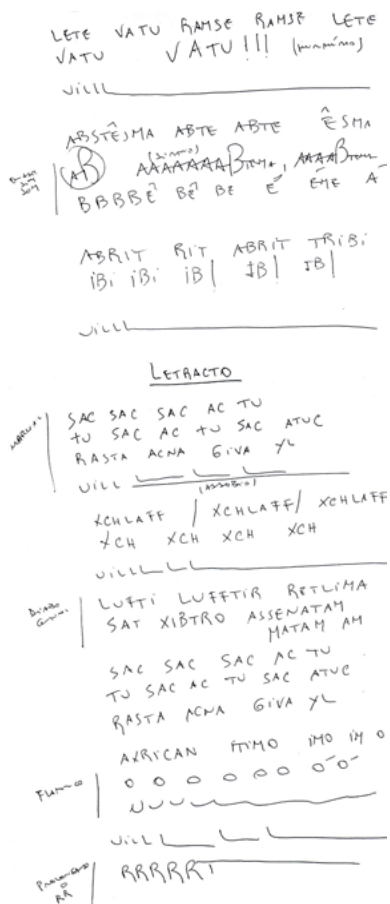 LETE VATU RAMSE RAMSE LETE
VATU VATU!!!
UILLL
ABSTÊSMA ABTE ABTE ÊSMA
AB AAAAAAAB
BBBBÊ BÊ BE É ÉME
ABRIT RIT ABRIT TRIBI
iBi iBi iB| IB| IB|
UILLL
LETRACTO
MARCIAL
SAC SAC SAC AC TU
TU SAC AC TU SAC ATUC
RASTA ACNA GIVA YL
UILL
(ASSOBIO)
XCHLAFF / XCHLAFF / XCHLAFF
XCH XCH XCH XCH
UILLL L L
LUFTI LUFFTIR RETLIMA
SAT XIBTRO ASSENATAM
MATAM AM
SAC SAC SAC AC TU
TU SAC AC TU SAC ATUC
RASTA ACNA GIVA YL
AXRICAN ITIMO IMO IM O
O O O O O O O O
UUU
UILL
RRRRRR